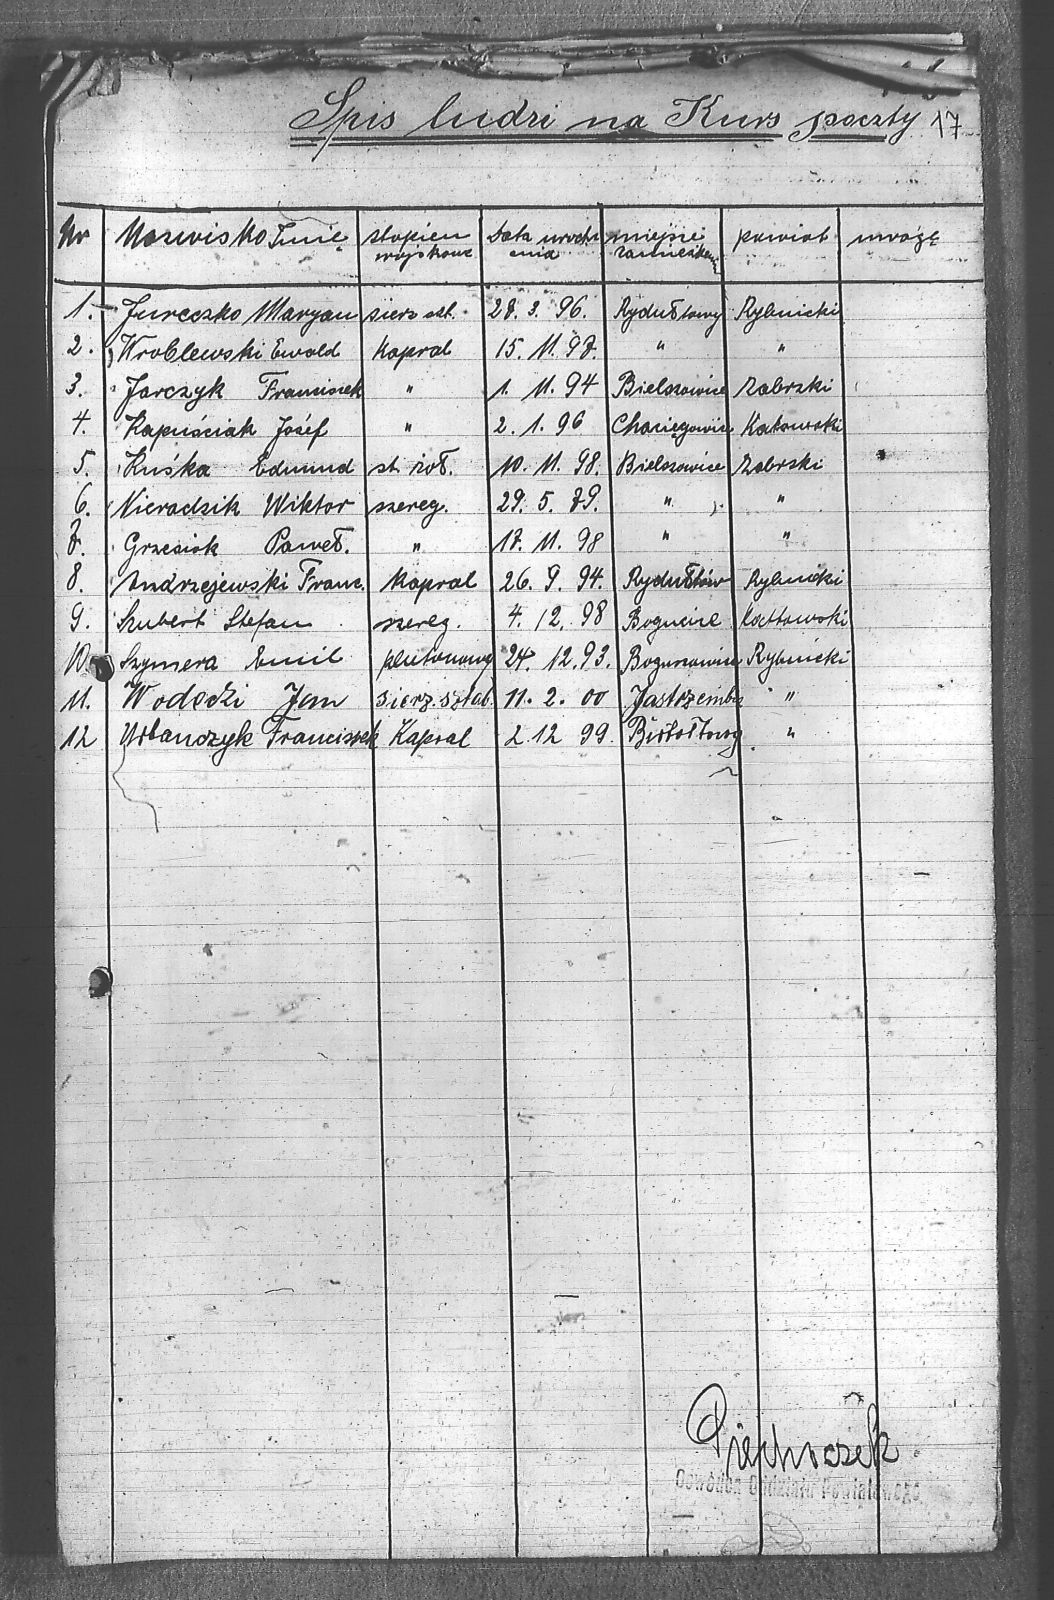 Spis ludzi na Kurs poczty 17
Nr Nazwisko Imię stopień wojskowe Data urodzenia miejsce zamieszkania powiat uwagę
1. Jureczko Maryan sierż szt. 28. 3. 96. Rydułtowy Rybnicki
2. Wroblewski Ewald Kapral 15. 11. 97. " "
3. Jarczyk Franciszek " 1. 11. 94 Bielszowice Zabrzski
4. Kapuściak Józef " 2. 1. 96 Katowski
5. Kuśka Edmund st. żoł. 10. 11. 98. Bielszowice Zabrski
6. Nieradzik Wiktor szereg. 29. 5. 79. " "
7. Grzesiok Paweł. " 17. 11. 98 " "
8. Andrzejewski Franc. Kapral 26. 9. 94. Rydułtów Rybnicki
9. Szubert Stefan szereg. 4. 12. 98 Bogucice
10. Szymera Emil plutonowy 24. 12. 93. Rybnicki
11. Wodecki Jan sierż. sztab. 11. 2. 00 Jastrzembie "
12 Urbanczyk Franciszek Kapral 2. 12 99. "
Piechoczek
Powiatowego